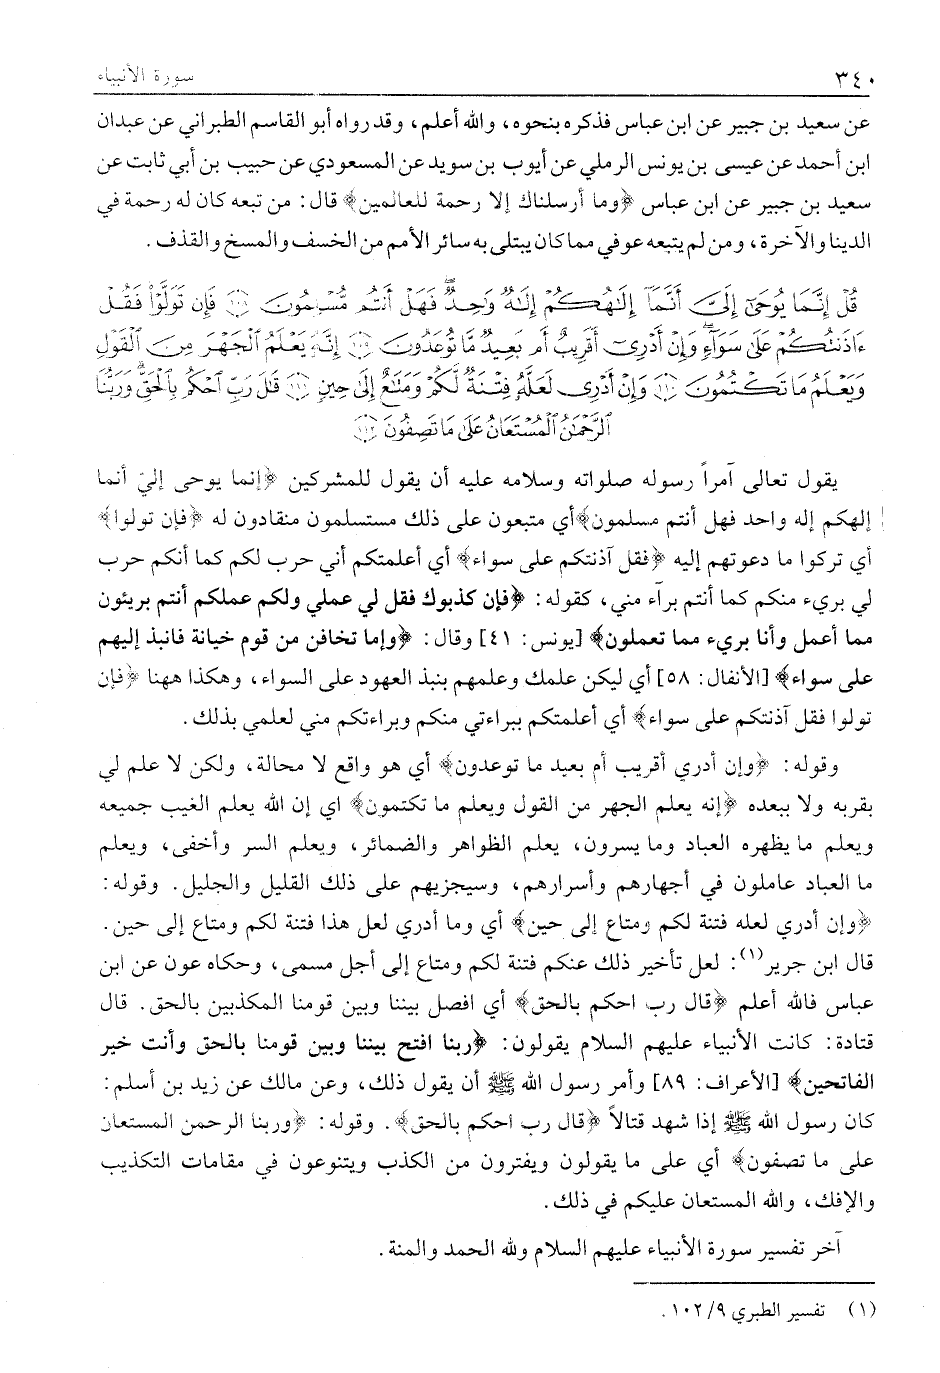 ٣٤٠ سورة الأنبياء
عن سعيد بن جبير عن ابن عباس فذكره بنحوه، والله أعلم، وقد رواه أبو القاسم الطبراني عن عبدان
ابن أحمد عن عيسى بن يونس الرملي عن أيوب بن سويد عن المسعودي عن حبيب بن أبي ثابت عن
سعيد بن جبير عن ابن عباس ﴿وما أرسلناك إلا رحمة للعالمين﴾ قال: من تبعه كان له رحمة في
الدينا والآخرة، ومن لم يتبعه عوفي مما كان يبتلى به سائر الأمم من الخسف والمسخ والقذف.
قُلْ إِنَّمَا يُوحَىٰ إِلَيَّ أَنَّمَا إِلَٰهُكُمْ إِلَٰهٌ وَٰحِدٌ ۖ فَهَلْ أَنتُم مُّسْلِمُونَ ۝ فَإِن تَوَلَّوْا۟ فَقُلْ
ءَاذَنتُكُمْ عَلَىٰ سَوَآءٍ ۖ وَإِنْ أَدْرِىٓ أَقَرِيبٌ أَم بَعِيدٌ مَّا تُوعَدُونَ ۝ إِنَّهُۥ يَعْلَمُ ٱلْجَهْرَ مِنَ ٱلْقَوْلِ
وَيَعْلَمُ مَا تَكْتُمُونَ ۝ وَإِنْ أَدْرِى لَعَلَّهُۥ فِتْنَةٌ لَّكُمْ وَمَتَٰعٌ إِلَىٰ حِينٍ ۝ قَٰلَ رَبِّ ٱحْكُم بِٱلْحَقِّ ۗ وَرَبُّنَا
ٱلرَّحْمَٰنُ ٱلْمُسْتَعَانُ عَلَىٰ مَا تَصِفُونَ ۝
يقول تعالى آمراً رسوله صلواته وسلامه عليه أن يقول للمشركين ﴿إنما يوحى إليّ أنما
إلهكم إله واحد فهل أنتم مسلمون﴾ أي متبعون على ذلك مستسلمون منقادون له ﴿فإن تولوا﴾
أي تركوا ما دعوتهم إليه ﴿فقل آذنتكم على سواء﴾ أي أعلمتكم أني حرب لكم كما أنكم حرب
لي بريء منكم كما أنتم برآء مني، كقوله: ﴿فإن كذبوك فقل لي عملي ولكم عملكم أنتم بريئون
مما أعمل وأنا بريء مما تعملون﴾ [يونس: ٤١] وقال: ﴿وإما تخافن من قوم خيانة فانبذ إليهم
على سواء﴾ [الأنفال: ٥٨] أي ليكن علمك وعلمهم بنبذ العهود على السواء، وهكذا ههنا ﴿فإن
تولوا فقل آذنتكم على سواء﴾ أي أعلمتكم ببراءتي منكم وبراءتكم مني لعلمي بذلك.
وقوله: ﴿وإن أدري أقريب أم بعيد ما توعدون﴾ أي هو واقع لا محالة، ولكن لا علم لي
بقربه ولا ببعده ﴿إنه يعلم الجهر من القول ويعلم ما تكتمون﴾ اي إن الله يعلم الغيب جميعه
ويعلم ما يظهره العباد وما يسرون، يعلم الظواهر والضمائر، ويعلم السر وأخفى، ويعلم
ما العباد عاملون في أجهارهم وأسرارهم، وسيجزيهم على ذلك القليل والجليل. وقوله:
﴿وإن أدري لعله فتنة لكم ومتاع إلى حين﴾ أي وما أدري لعل هذا فتنة لكم ومتاع إلى حين.
قال ابن جرير(١): لعل تأخير ذلك عنكم فتنة لكم ومتاع إلى أجل مسمى، وحكاه عون عن ابن
عباس فالله أعلم ﴿قال رب احكم بالحق﴾ أي افصل بيننا وبين قومنا المكذبين بالحق. قال
قتادة: كانت الأنبياء عليهم السلام يقولون: ﴿ربنا افتح بيننا وبين قومنا بالحق وأنت خير
الفاتحين﴾ [الأعراف: ٨٩] وأمر رسول الله ﷺ أن يقول ذلك، وعن مالك عن زيد بن أسلم:
كان رسول الله ﷺ إذا شهد قتالاً ﴿قال رب احكم بالحق﴾. وقوله: ﴿وربنا الرحمن المستعان
على ما تصفون﴾ أي على ما يقولون ويفترون من الكذب ويتنوعون في مقامات التكذيب
والإفك، والله المستعان عليكم في ذلك.
آخر تفسير سورة الأنبياء عليهم السلام ولله الحمد والمنة.
(١) تفسير الطبري ٩/ ١٠٢.